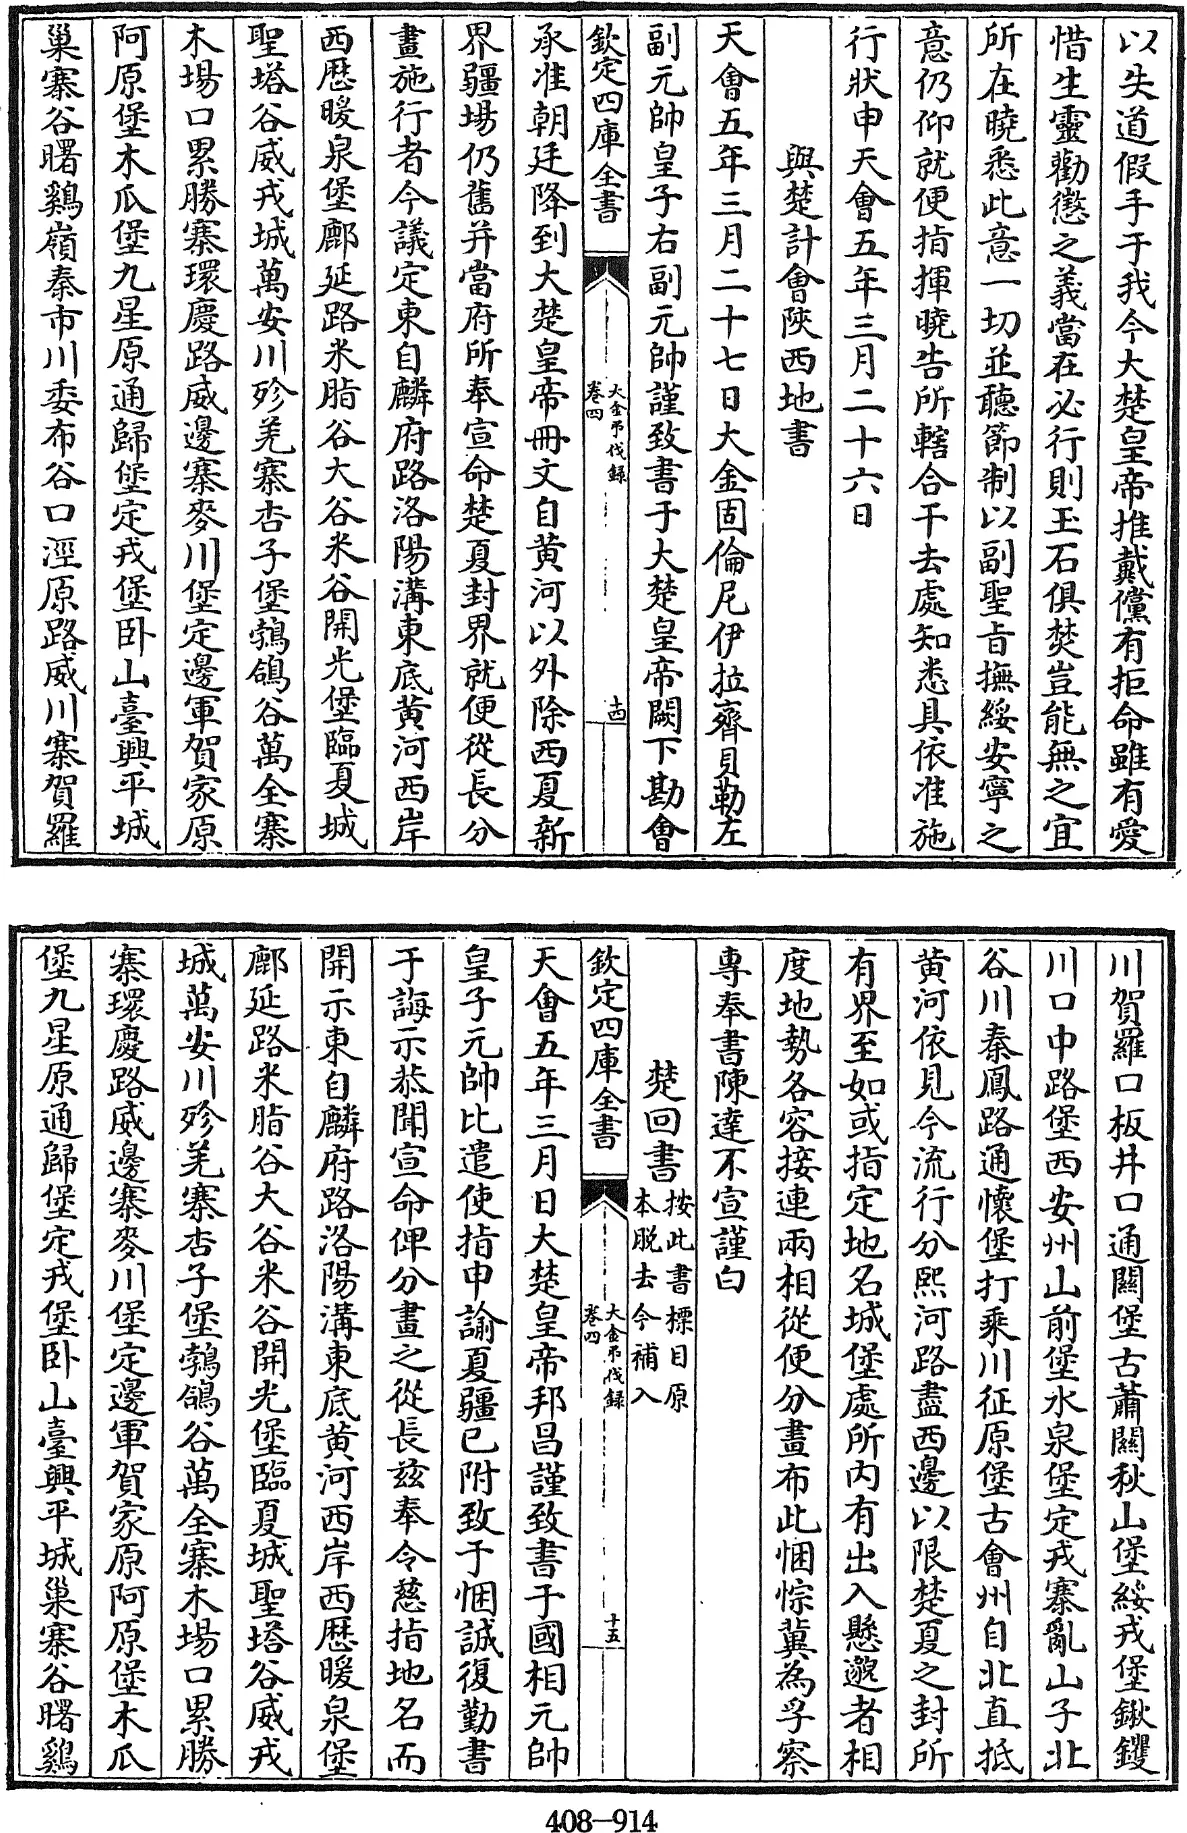 以失道假手于我今大楚皇帝推戴儻有拒命雖有愛
惜生靈勸懲之義當在必行則玉石俱焚豈能無之宜
所在曉悉此意一切並聽節制以副聖旨撫綏安寧之
意仍仰就便指揮曉告所轄合干去處知悉具依准施
行狀申天會五年三月二十六日
與楚計會陝西地書
天會五年三月二十七日大金固倫尼伊拉齊貝勒左
副元帥皇子右副元帥謹致書于大楚皇帝闕下勘會
欽定四庫全書
大金弔伐錄
卷四
十四
承准朝廷降到大楚皇帝冊文自黃河以外除西夏新
界疆場仍舊并當府所奉宣命楚夏封界就便從長分
畫施行者今議定東自麟府路洛陽溝東底黃河西岸
西歷暖泉堡鄜延路米脂谷大谷米谷開光堡臨夏城
聖塔谷威戎城萬安川殄羌寨杏子堡鵓鴿谷萬全寨
木場口累勝寨環慶路威邊寨麥川堡定邊軍賀家原
阿原堡木瓜堡九星原通歸堡定戎堡卧山臺興平城
巢寨谷曙鷄嶺秦市川委布谷口涇原路威川寨賀羅
川賀羅口板井口通關堡古蕭關秋山堡綏戎堡鍬钁
川口中路堡西安州山前堡水泉堡定戎寨亂山子北
谷川秦鳳路通懷堡打乘川征原堡古會州自北直抵
黃河依見今流行分熙河路盡西邊以限楚夏之封所
有界至如或指定地名城堡處所內有出入懸邈者相
度地勢各容接連兩相從便分畫布此悃悰冀為孚察
專奉書陳達不宣謹白
楚回書
按此書標目原
本脱去今補入
欽定四庫全書
大金弔伐錄
卷四
十五
天會五年三月日大楚皇帝邦昌謹致書于國相元帥
皇子元帥比遣使指申諭夏疆已附致于悃誠復勤書
于誨示恭聞宣命俾分畫之從長兹奉令慈指地名而
開示東自麟府路洛陽溝東底黃河西岸西歷暖泉堡
鄜延路米脂谷大谷米谷開光堡臨夏城聖塔谷威戎
城萬安川殄羌寨杏子堡鵓鴿谷萬全寨木場口累勝
寨環慶路威邊寨麥川堡定邊軍賀家原阿原堡木瓜
堡九星原通歸堡定戎堡卧山臺興平城巢寨谷曙鷄
408-914